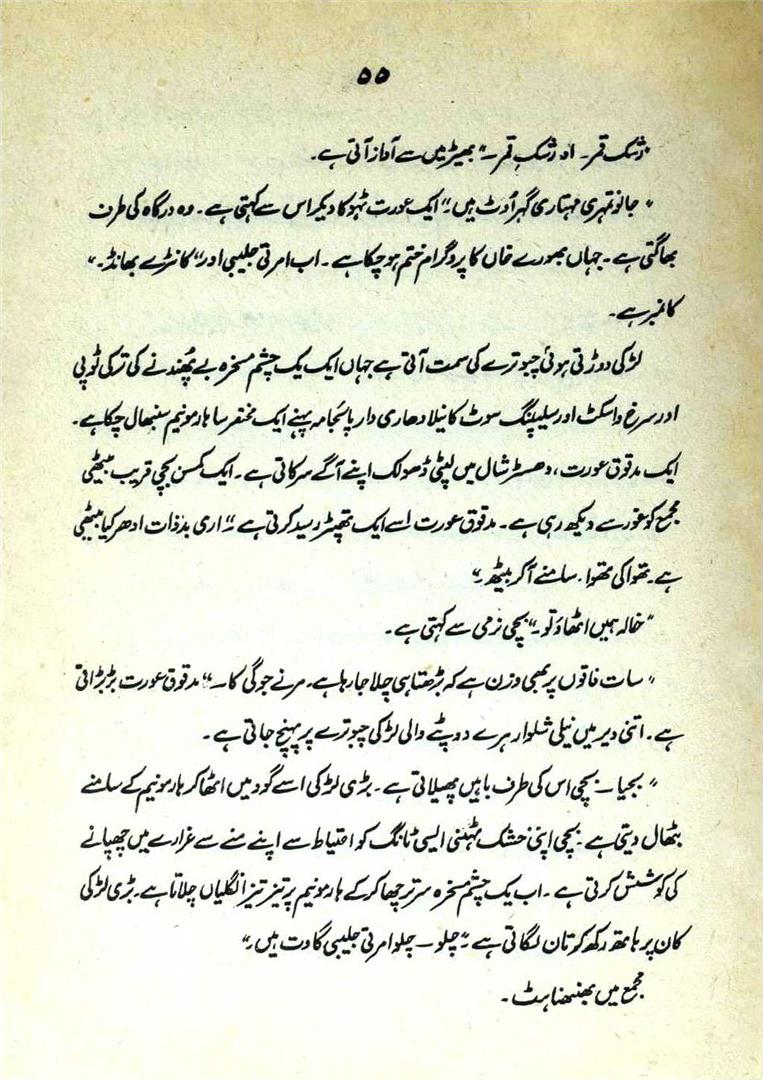 ۵۵
"رشک قمر۔ اور رشک قمر۔" بھیڑ میں سے آواز آتی ہے۔
"جانو تمہری مہتاری گہراوٹ ہیں۔" ایک عورت ٹہوکا دیکر اس سے کہتی ہے۔ وہ درگاہ کی طرف
بھاگتی ہے۔ جہاں بھورے خاں کا پروگرام ختم ہو چکا ہے۔ اب امرتی جلیبی اور "کانڑے بھانڈ۔"
کا نمبر ہے۔
لڑکی دوڑتی ہوئی چبوترے کی سمت آتی ہے جہاں ایک یک چشم مسخرہ بے پھُندنے کی ترکی ٹوپی
اور سرخ واسکٹ اور سلیپنگ سوٹ کا نیلا دھاری دار پائجامہ پہنے ایک مختصر سا ہارمونیم سنبھال چکا ہے۔
ایک مدقوق عورت، دھسٹر شال میں لپٹی ڈھولک اپنے آگے سرکاتی ہے۔ ایک کمسن بچی قریب بیٹھی
مجمع کو غور سے دیکھ رہی ہے۔ مدقوق عورت اسے ایک تھپڑ رسید کرتی ہے "اری بدذات ادھر کیا بیٹھی
ہے۔ تھوا کی تھوا۔ سامنے آکر بیٹھ۔"
"خالہ ہمیں اٹھاؤ تو۔" بچی نرمی سے کہتی ہے۔
"سات فاقوں پر بھی وزن ہے کہ بڑھتا ہی چلا جا رہا ہے۔ مرنے جوگی کا۔" مدقوق عورت بڑبڑاتی
ہے۔ اتنی دیر میں نیلی شلوار ہرے دوپٹے والی لڑکی چبوترے پر پہنچ جاتی ہے۔
"بجیا۔ بچی اس کی طرف باہیں پھیلاتی ہے۔ بڑی لڑکی اسے گود میں اٹھا کر ہارمونیم کے سامنے
بٹھال دیتی ہے۔ بچی اپنی خشک ٹہنی ایسی ٹانگ کو احتیاط سے اپنے منے سے غرارے میں چھپانے
کی کوشش کرتی ہے۔ اب یک چشم مسخرہ سر ترچھا کر کے ہارمونیم پر تیز تیز انگلیاں چلاتا ہے۔ بڑی لڑکی
کان پر ہاتھ رکھ کر تان لگاتی ہے "چلو۔ چلو امرتی جلیبی گاوت ہیں۔"
مجمع میں بھنبھناہٹ۔